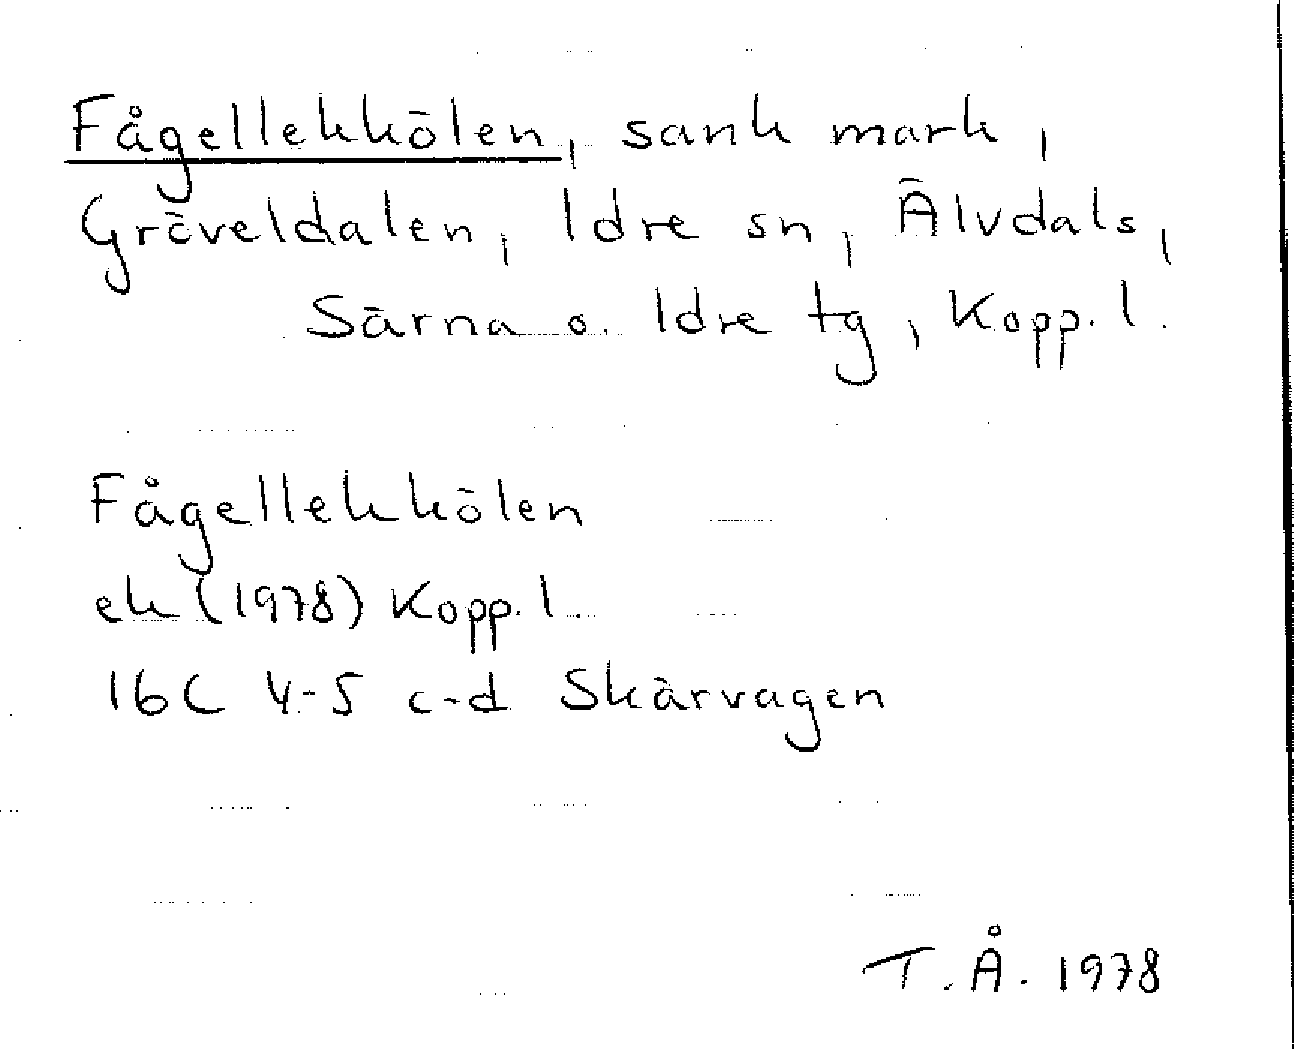 Fågellekkölen, sank mark,
Gröveldalen, Idre sn, Älvdals,
Särna o. Idre tg, Kopp. l.
Fågellekkölen
ek (1978) Kopp. l.
16C 4-5 c-d Skärvagen
T. Å. 1978